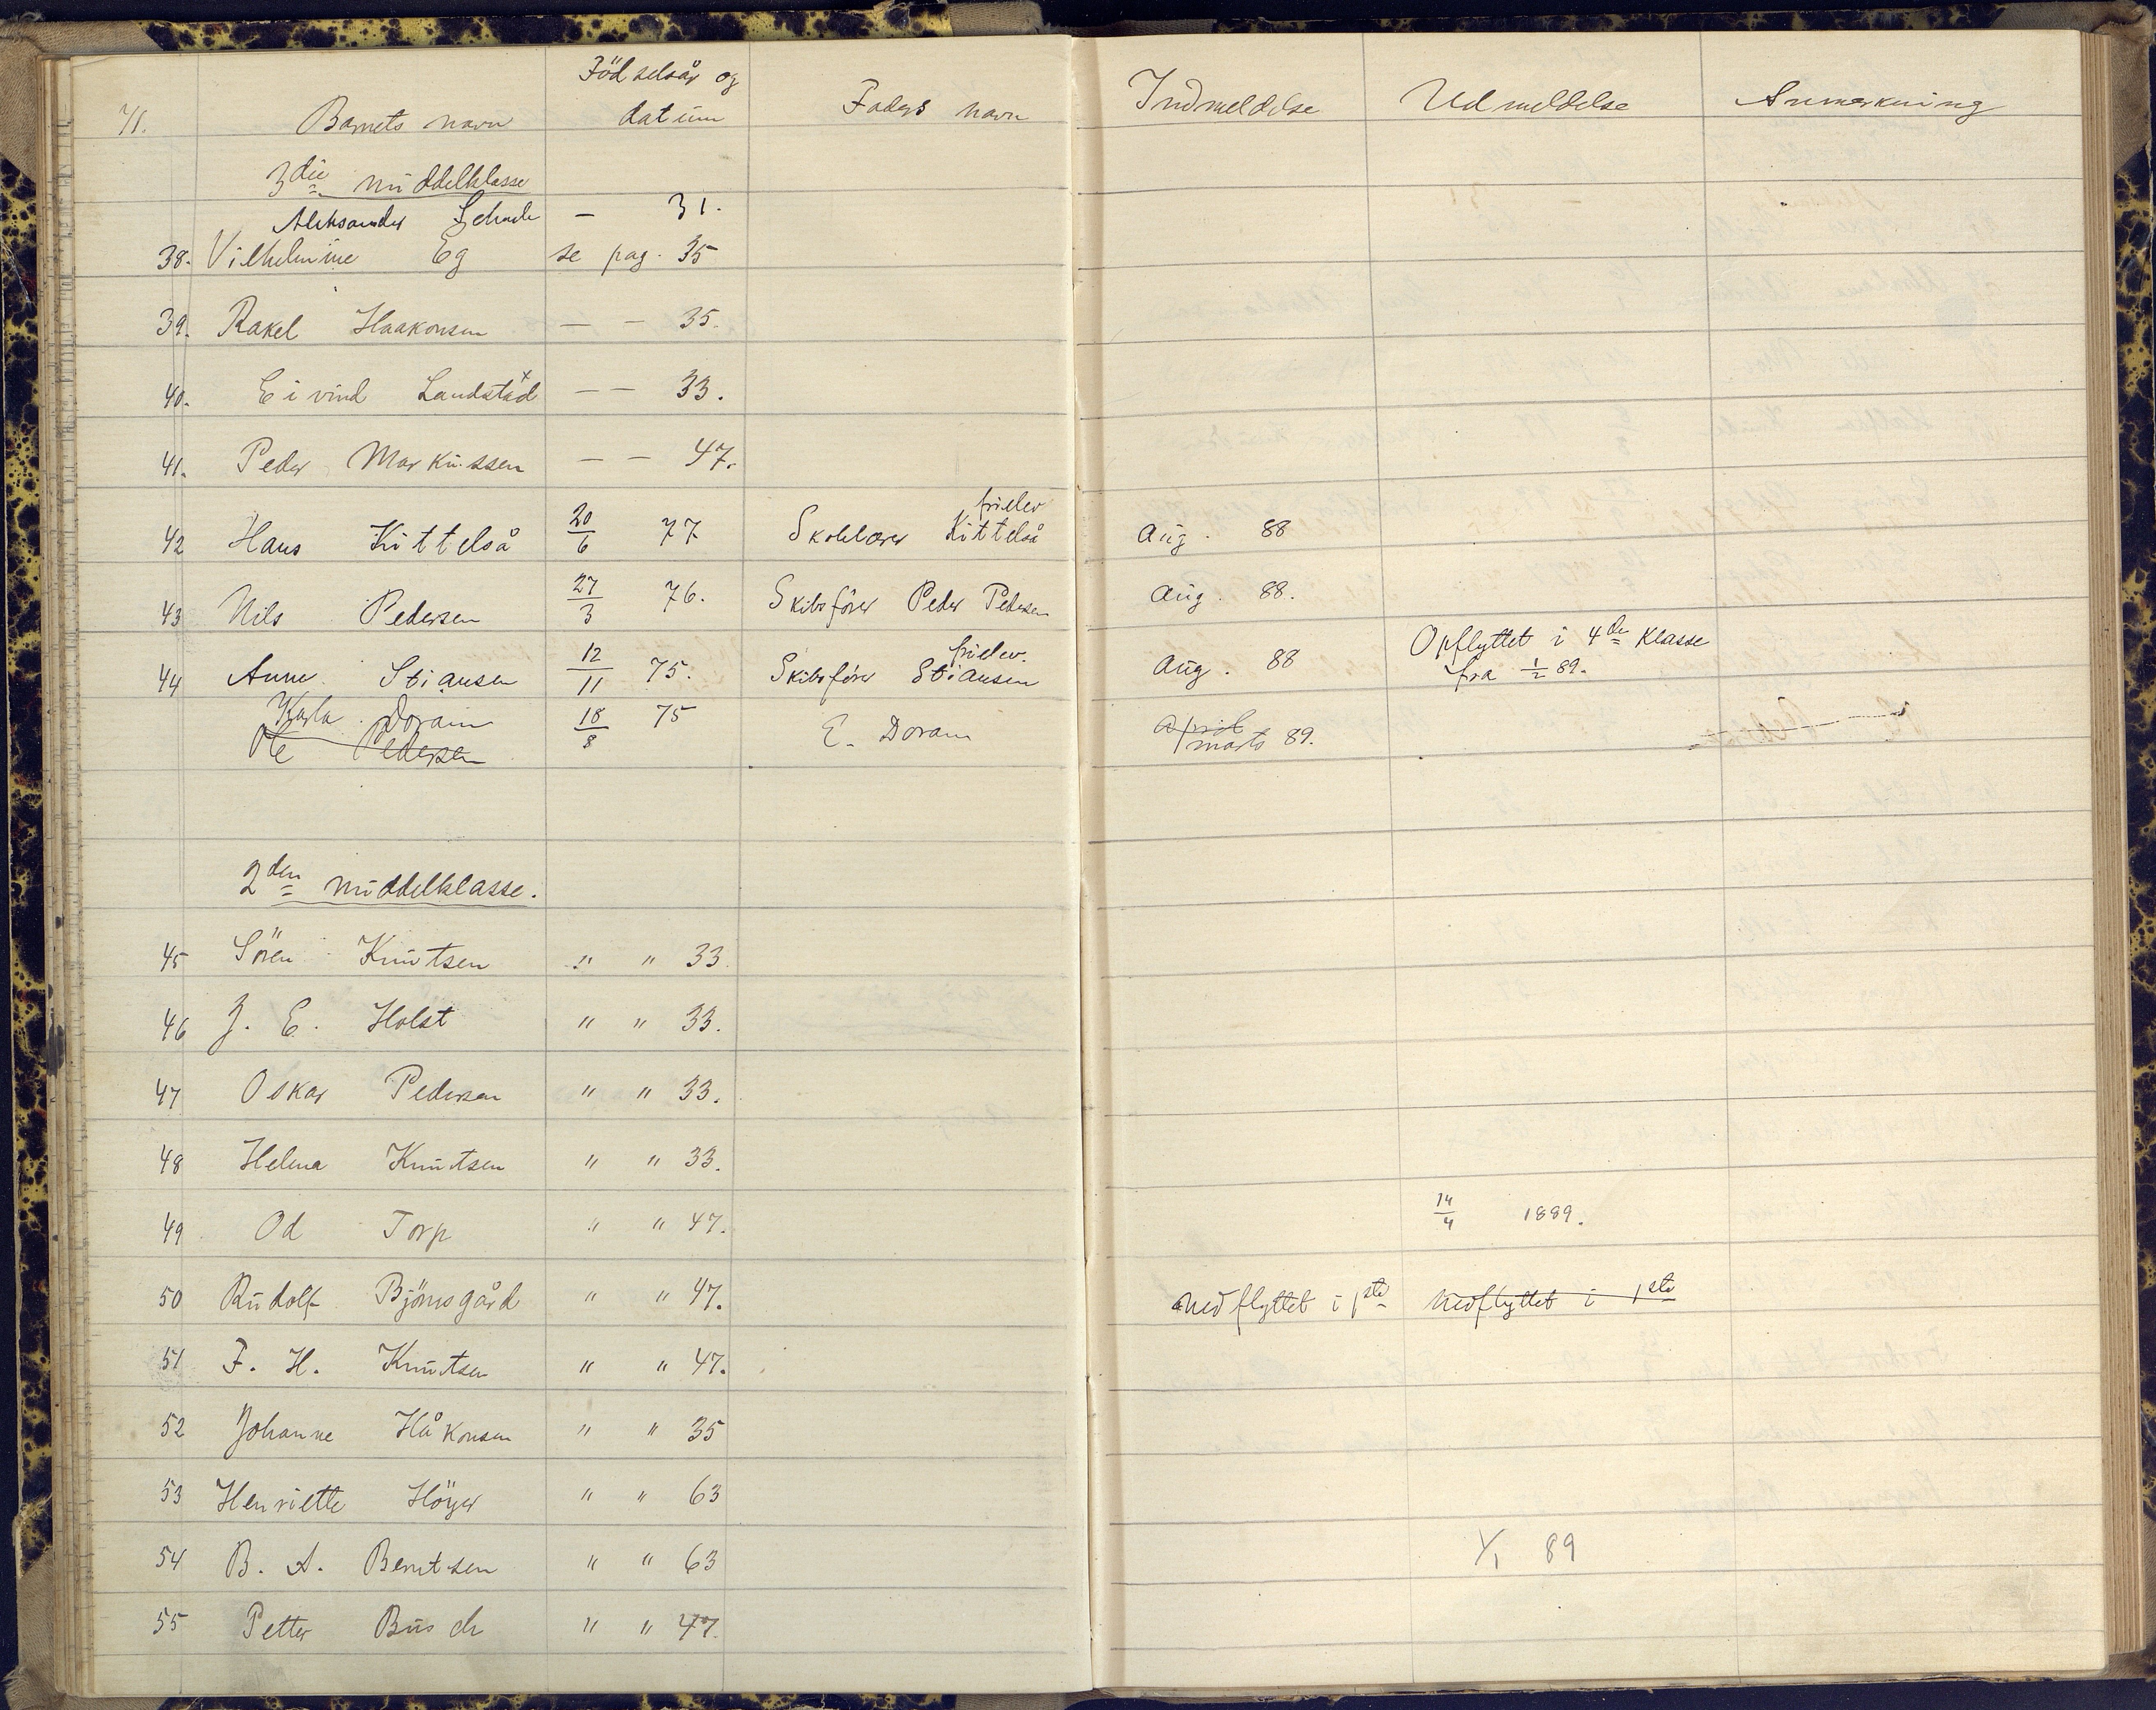 71. Barnets navn Födselsår og datum Faders navn Indmeldelse Udmeldelse Anmærkning
3die middelklasse
Aleksander — 31.
38. Vilhelmine Eg se pag. 35
39. Rakel Haakonsen — — 35.
40. Eivind Landstad x — — 33.
41. Peder Markussen — — 47.
42 Hans Kittelså 20/6 77 Skolelærer Kittelså frielev Aug. 88
43 Nils Pedersen 27/3 76. Skibsförer Peder Pedersen Aug. 88.
44 Anne Stiansen 12/11 75. Skibsförer Stiansen frielev. Aug. 88 Opflyttet i 4de Klasse
fra 1/2 89.
Karla Doram 18/8 75 E. Doram April
marts 89.
Ole Pedersen
2den middelklasse.
45 Sören Knutsen " " 33
46 J. E. Holst " " 33.
47 Oskar Pedersen " " 33.
48 Helena Knutsen " " 33.
49 Od Torp " " 47. 14/4 1889.
50 Rudolf Björnsgård " " 47. Nedflyttet i 1ste Nedflyttet i 1ste
51 F. H. Knutsen " " 47.
52 Johanne Håkonsen " " 35
53 Henriette Höyer " " 63
54 B. A. Berntsen " " 63 1/1 89
55 Petter Busch " " 47.